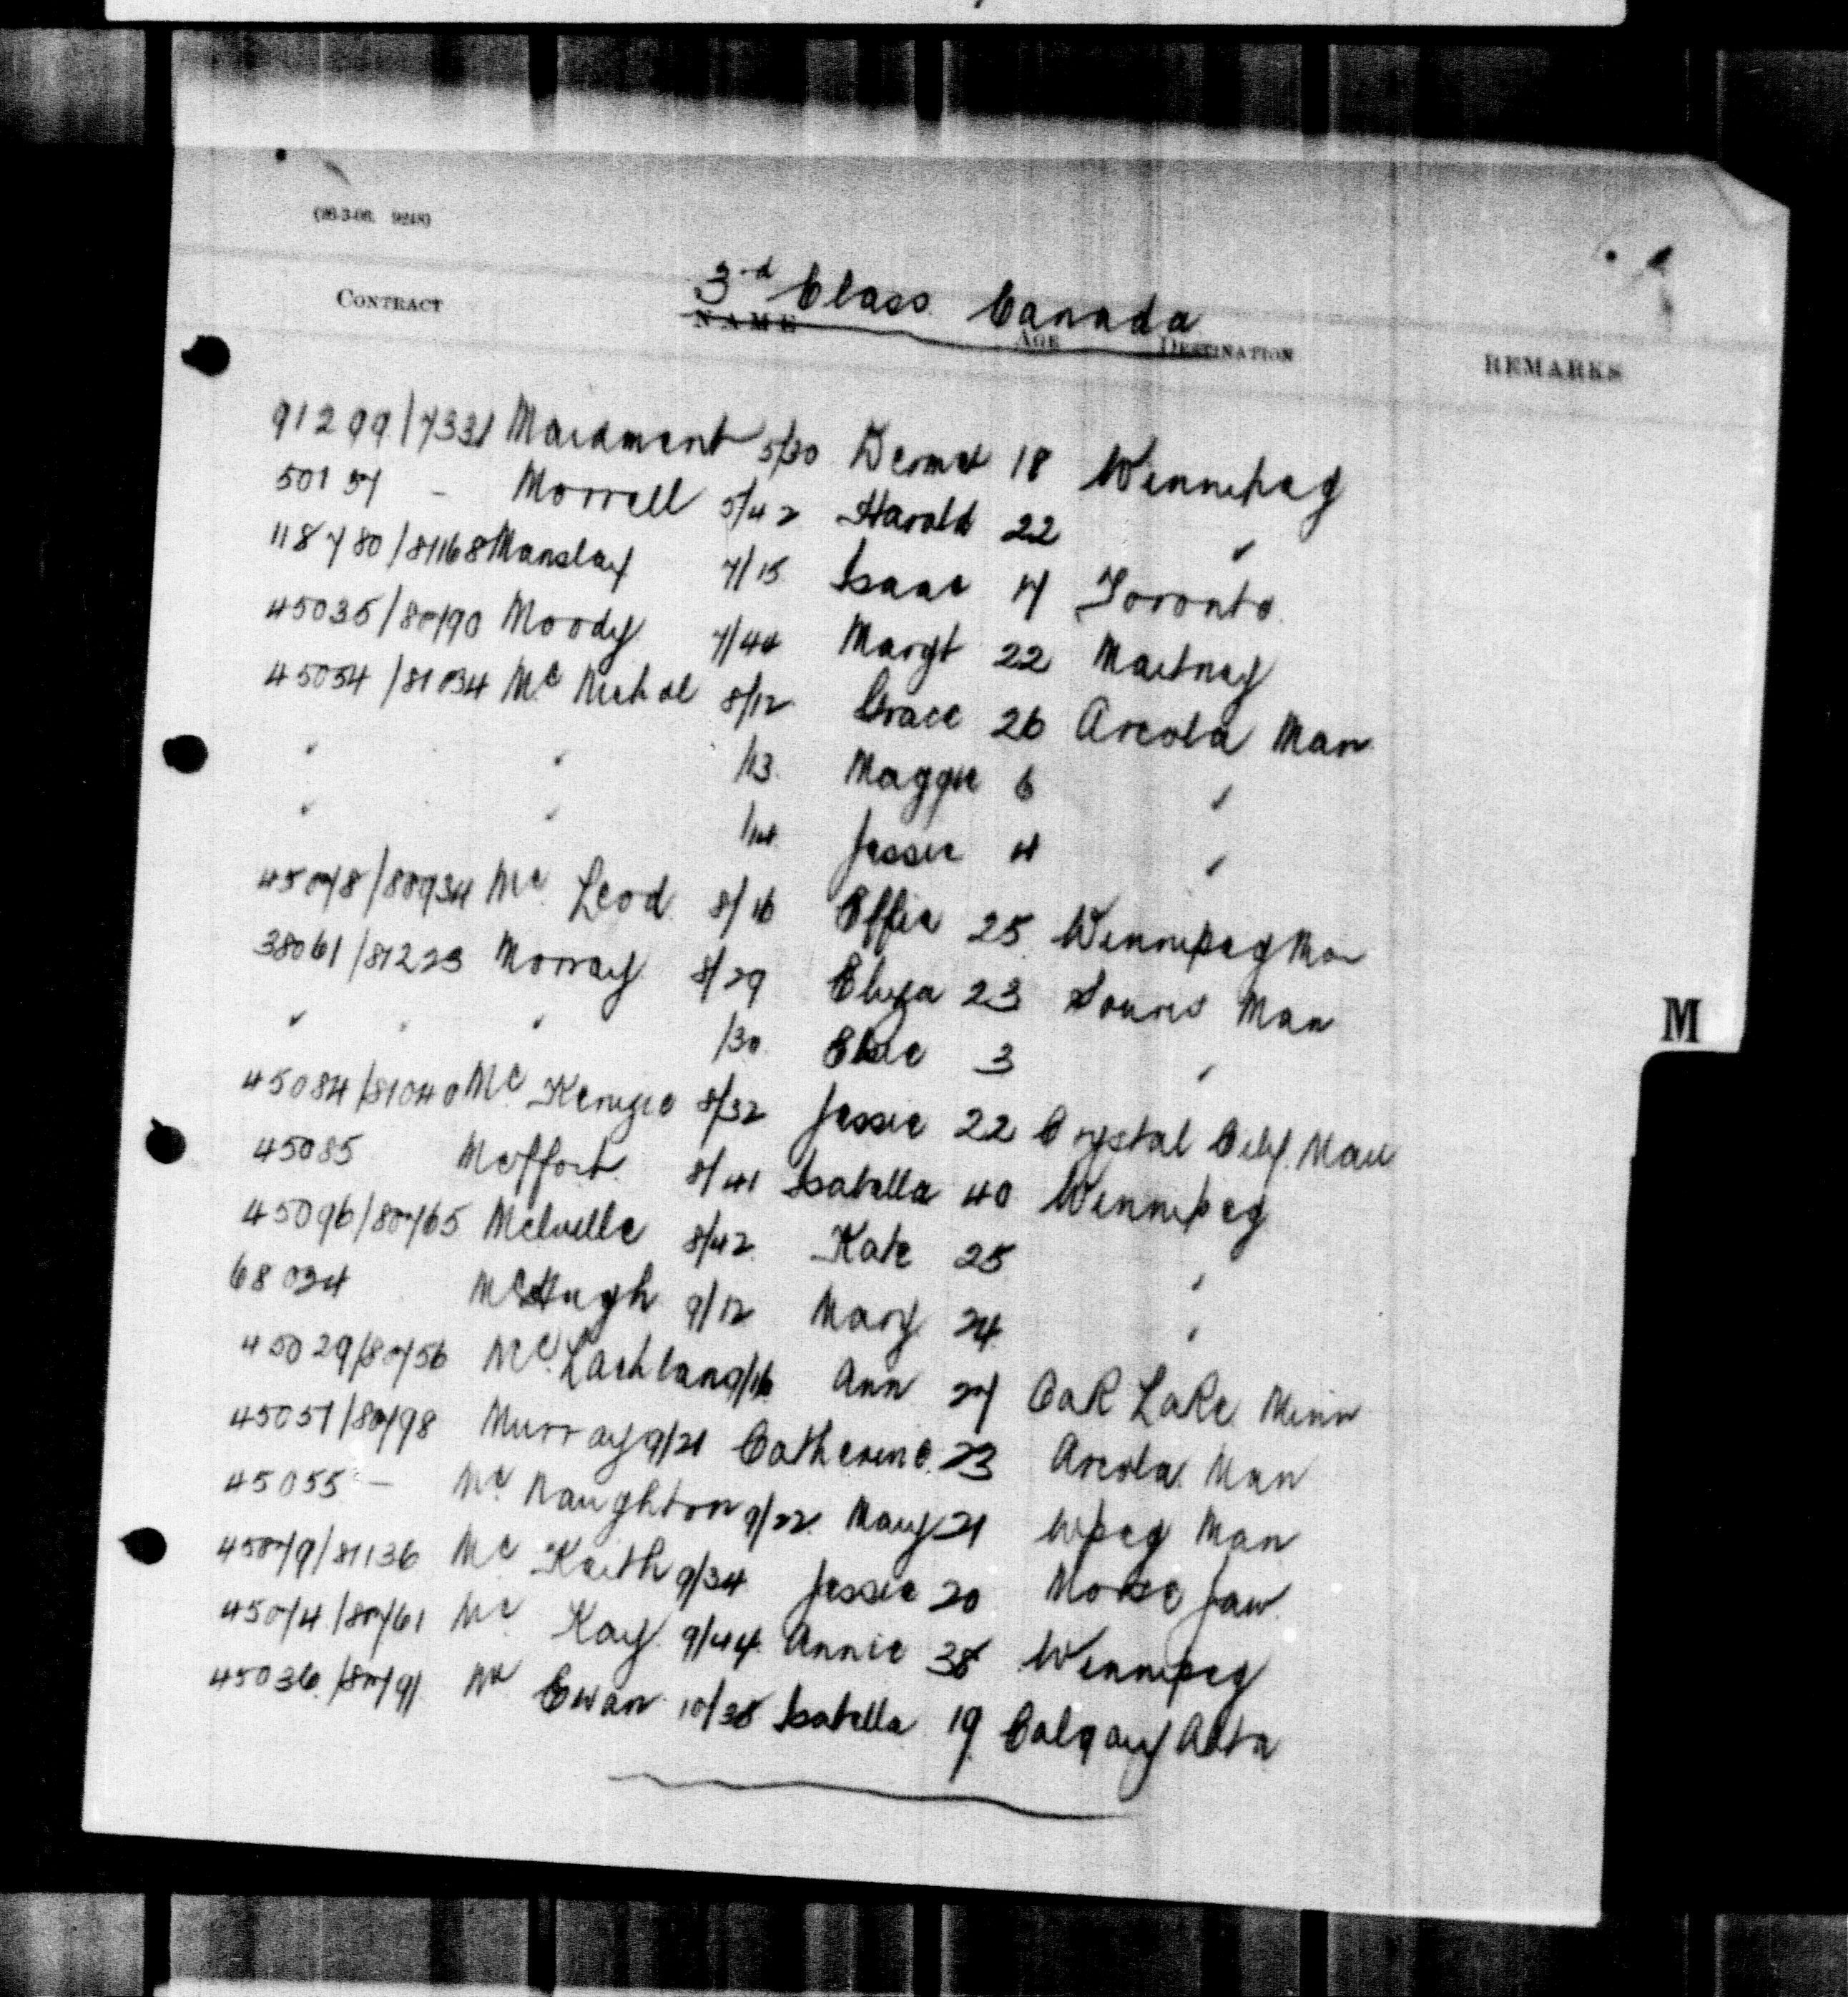 (26-3-06. 9248)
3rd Class Canada
CONTRACT NAME AGE DESTINATION REMARKS
91299/7331 Maidment 5/30 18 Winnipeg
50157 - Morrell 5/42 Harold 22 "
118780/81168 Mansley 7/15 Isaac 17 Toronto
45035/80790 Moody 7/44 Margt 22
45054/81034 Mc Nichol 8/12 Grace 26 Arcola Man
" " /13 Maggie 6 "
" " /14 Jessie 4 "
45078/80934 Mc Leod 8/16 Effie 25 Winnipeg Man
38061/81223 Morray 8/29 Eliza 23 Souris Man
" " " /30 Elsie 3 "
45084/81040 Mc Kenzie 8/32 Jessie 22 Crystal City Man
45085 Moffort 8/41 Isabella 40 Winnipeg
45096/80765 Melville 8/42 Kate 25 "
68034 McHugh 9/12 Mary 24 "
45029/80756 Mc Lachlan 9/16 Ann 27 Oak Lake Minn
45057/80798 Murray 9/21 Catherine 23 Arcola Man
45055 - Mc Naughton 9/22 Mary 21 Wpeg Man
45079/81136 Mc Keith 9/34 Jessie 20 Moose Jaw
45074/80761 Mc Kay 9/44 Annie 38 Winnipeg
45036/80791 Mc Ewan 10/38 Isabella 19 Calgary Alta
M